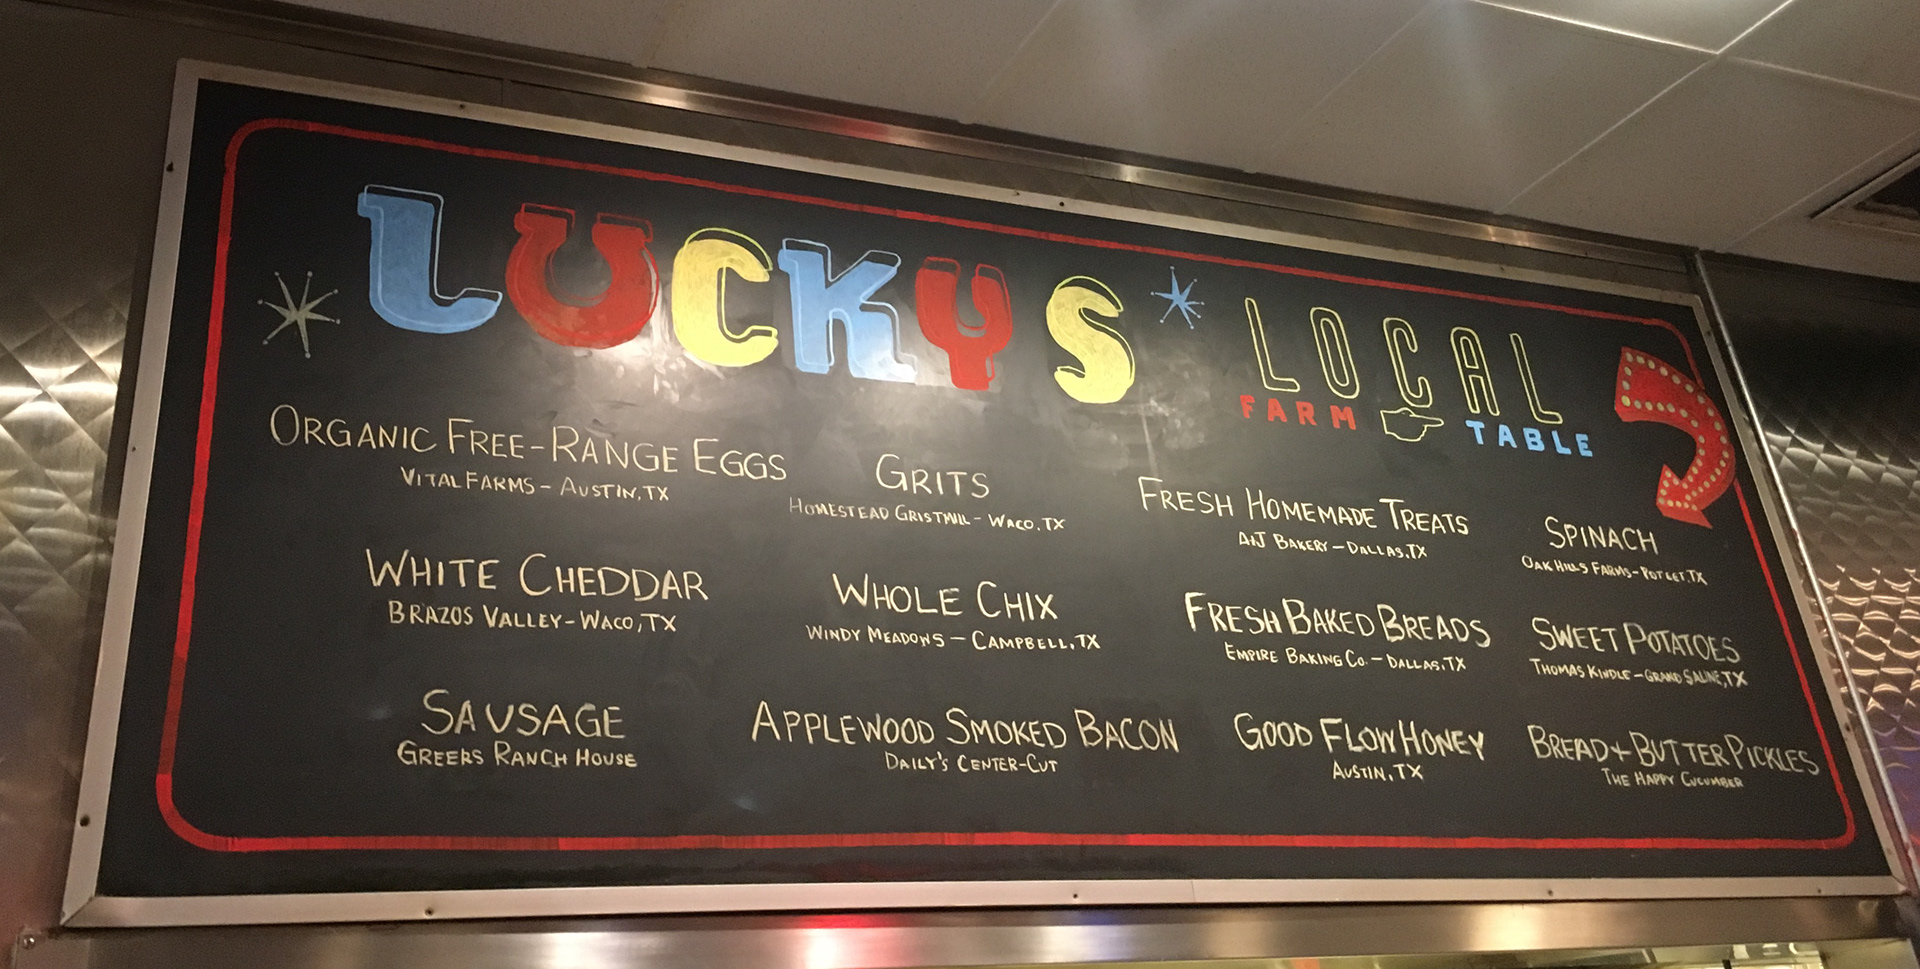 LUCKYS LOCAL
FARM TABLE
ORGANIC FREE-RANGE EGGS
VITAL FARMS - AUSTIN, TX
WHITE CHEDDAR
BRAZOS VALLEY - WACO, TX
SAUSAGE
GREERS RANCH HOUSE
GRITS
HOMESTEAD GRISTMILL - WACO, TX
WHOLE CHIX
WINDY MEADOWS - CAMPBELL, TX
APPLEWOOD SMOKED BACON
DAILY'S CENTER-CUT
FRESH HOMEMADE TREATS
A+J BAKERY - DALLAS, TX
FRESH BAKED BREADS
EMPIRE BAKING CO. - DALLAS, TX
GOOD FLOW HONEY
AUSTIN, TX
SPINACH
OAK HILLS FARMS - POTEET, TX
SWEET POTATOES
THOMAS KINDLE - GRAND SALINE, TX
BREAD + BUTTER PICKLES
THE HAPPY CUCUMBER